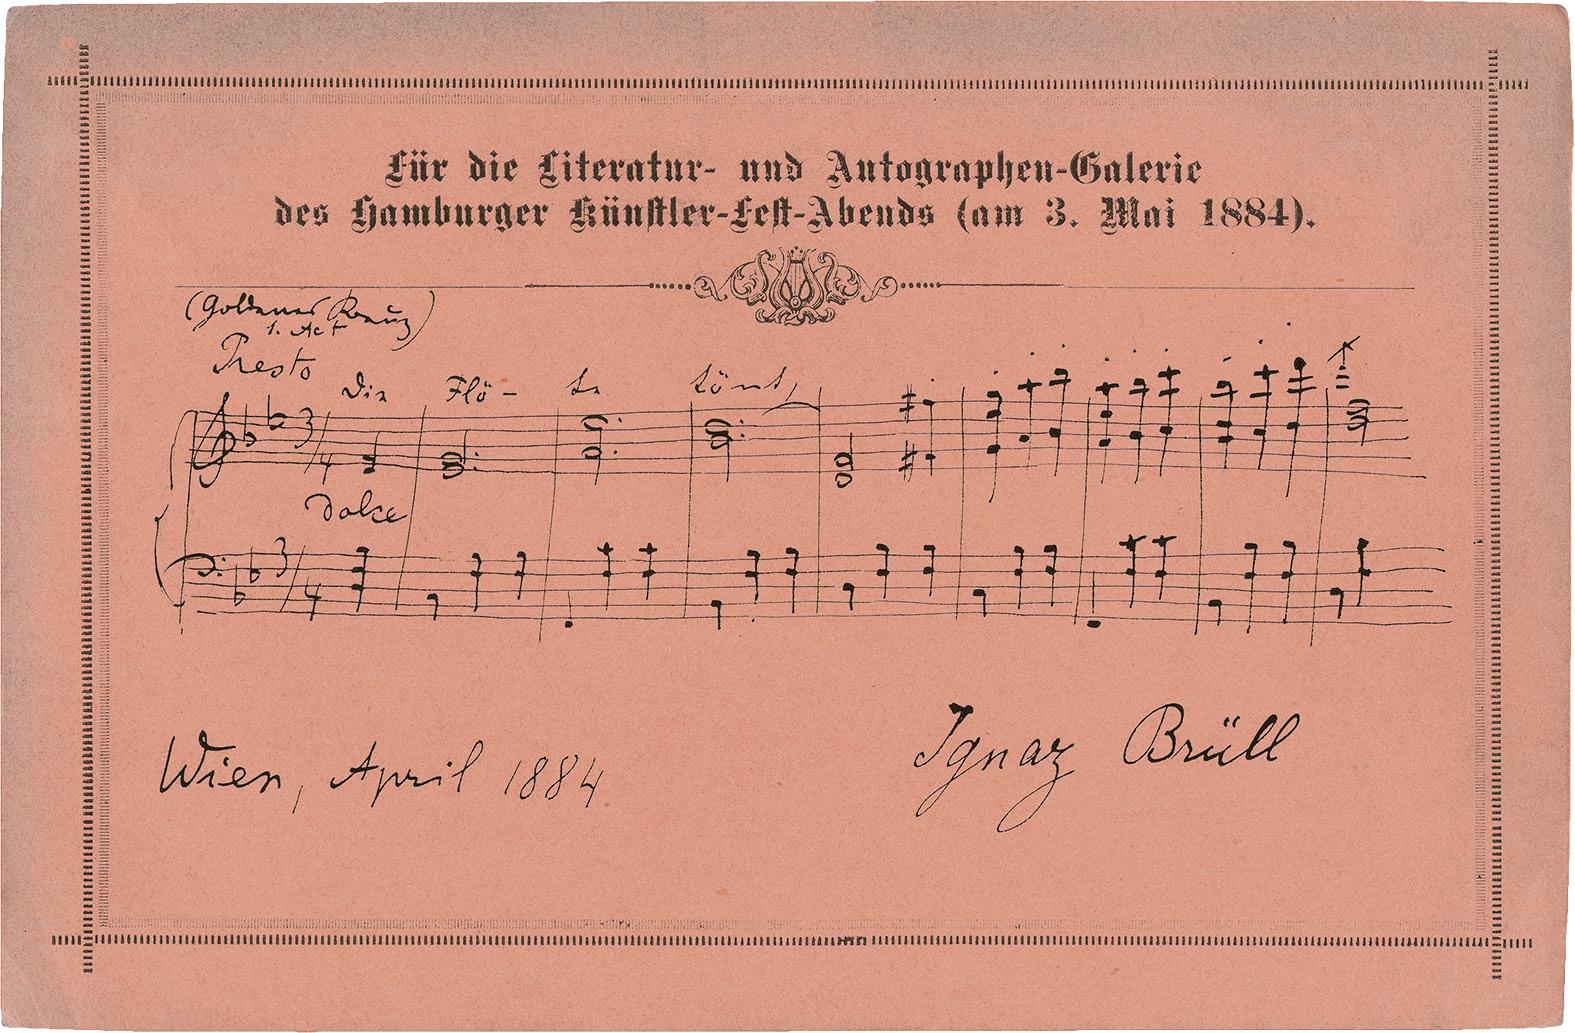 Für die Literatur- und Autographen-Galerie
des Hamburger Künstler-Fest-Abends (am 3. Mai 1884).
(Goldenes Kreuz)
1. Act
Presto
Die Flö- te tönt,
3/4
Dolce
3/4
Wien, April 1884
Ignaz Brüll